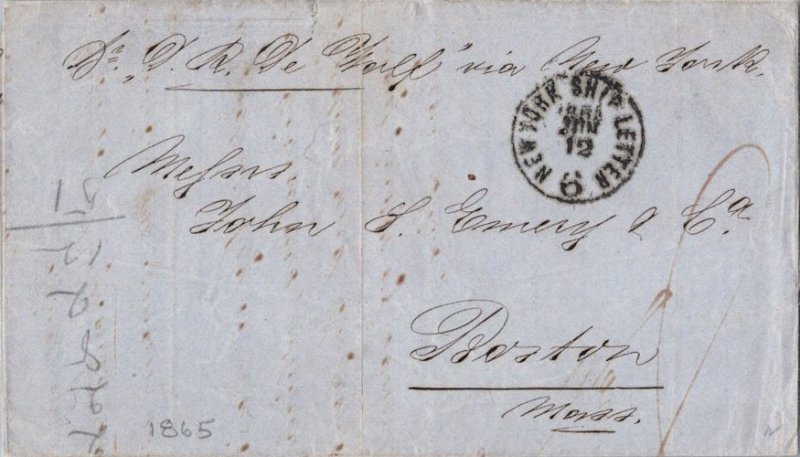 "D. R. De Wolf" via New York.
NEW YORK SHIP LETTER
JUN
12
6
Messrs.
John S. Emery & Co.
Boston
Mass.
1865